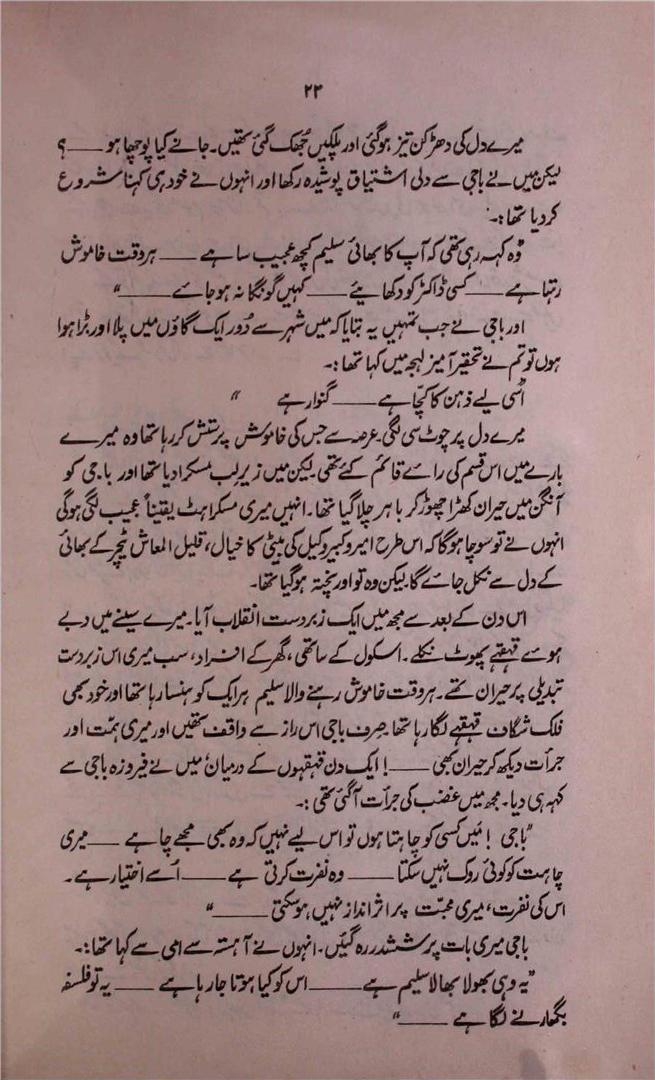 ۲۳
میرے دل کی دھڑکن تیز ہوگئی اور پلکیں جُھک گئی تھیں۔ جانے کیا پوچھا ہو ——؟
لیکن میں نے باجی سے دلی اشتیاق پوشیدہ رکھا اور انہوں نے خود ہی کہنا شروع
کردیا تھا:۔
"وُہ کہہ رہی تھی کہ آپ کا بھائی سلیم کچھ عجیب سا ہے —— ہر وقت خاموش
رہتا ہے —— کسی ڈاکٹر کو دکھائیے —— کہیں گونگا نہ ہو جائے ——"
اور باجی نے جب تمہیں یہ بتایا کہ میں شہر سے دُور ایک گاؤں میں پلا اور بڑا ہوا
ہوں تو تم نے تحقیر آمیز لہجہ میں کہا تھا:۔
اُسی لیے ذہن کا کچّا ہے —— گنوار ہے "
میرے دل پر چوٹ سی لگی۔ عرصہ سے جس کی خاموش پرستش کر رہا تھا وہ میرے
بارے میں اس قسم کی رائے قائم کئے تھی۔ لیکن میں زیرِ لب مسکرا دیا تھا اور باجی کو
آنگن میں حیران کھڑا چھوڑ کر باہر چلا گیا تھا۔ انہیں میری مسکراہٹ یقیناً عجیب لگی ہوگی
انہوں نے تو سوچا ہوگا کہ اس طرح امیر و کبیر وکیل کی بیٹی کا خیال، قلیل المعاش ٹیچر کے بھائی
کے دل سے نکل جائے گا۔ لیکن وہ تو اور پختہ ہوگیا تھا۔
اس دن کے بعد سے مجھ میں ایک زبردست انقلاب آیا۔ میرے سینے میں دبے
ہوئے قہقہے پھوٹ نکلے۔ اسکول کے ساتھی، گھر کے افراد، سب میری اس زبردست
تبدیلی پر حیران تھے۔ ہر وقت خاموش رہنے والا سلیم ہر ایک کو ہنسا رہا تھا اور خود بھی
فلک شگاف قہقہے لگا رہا تھا۔ صرف باجی اس راز سے واقف تھیں اور میری ہمّت اور
جرأت دیکھ کر حیران بھی ——! ایک دن قہقہوں کے درمیان میں نے فیروزہ باجی سے
کہہ ہی دیا۔ مجھ میں غضب کی جرأت آگئی تھی:۔
"باجی! مَیں کسی کو چاہتا ہوں تو اس لیے نہیں کہ وہ بھی مجھے چاہے —— میری
چاہت کو کوئی روک نہیں سکتا —— وہ نفرت کرتی ہے —— اُسے اختیار ہے۔
اس کی نفرت، میری محبّت پر اثر انداز نہیں ہوسکتی ——"
باجی میری بات پر ششدر رہ گئیں۔ انہوں نے آہستہ سے امی سے کہا تھا:۔
"یہ وہی بھولا بھالا سلیم ہے —— اس کو کیا ہوتا جا رہا ہے —— یہ تو فلسفہ
بگھارنے لگا ہے ——"